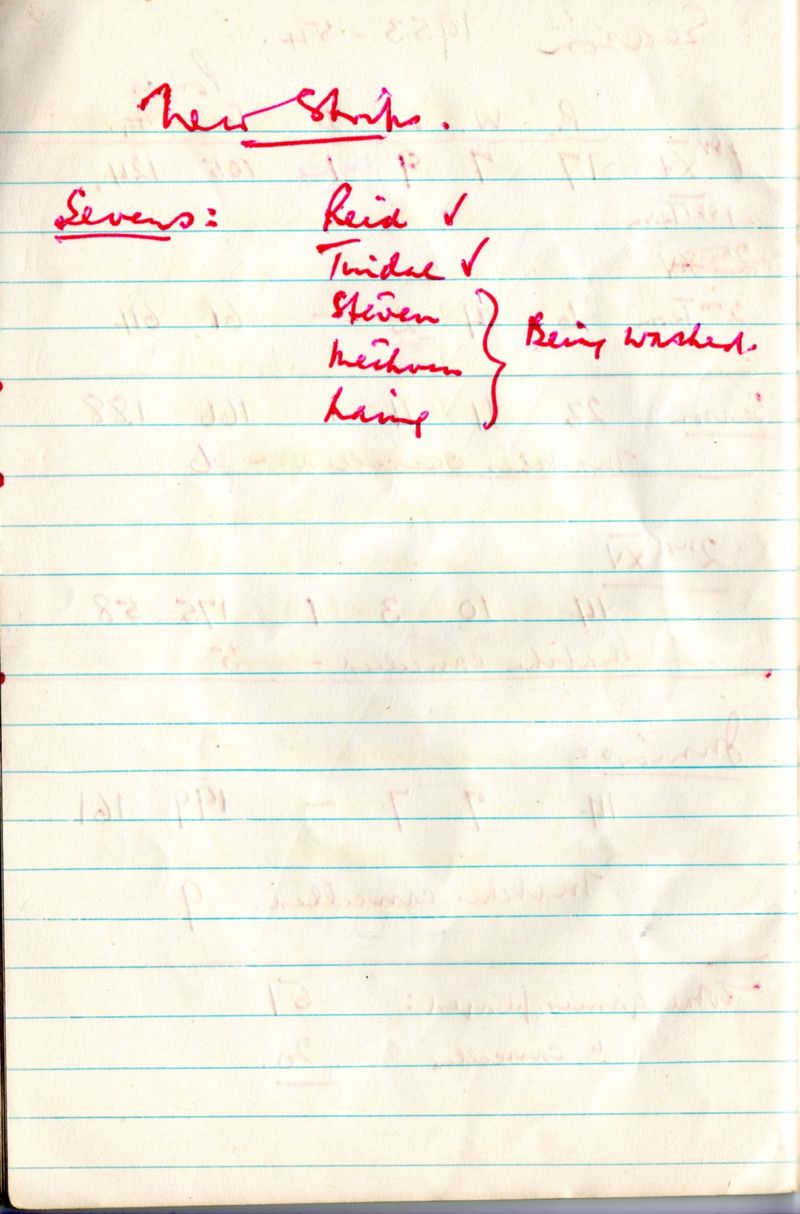 New Strips.
Sevens: Reid ✓
Tindal ✓
Steven
Methven
Laing
} Being washed.